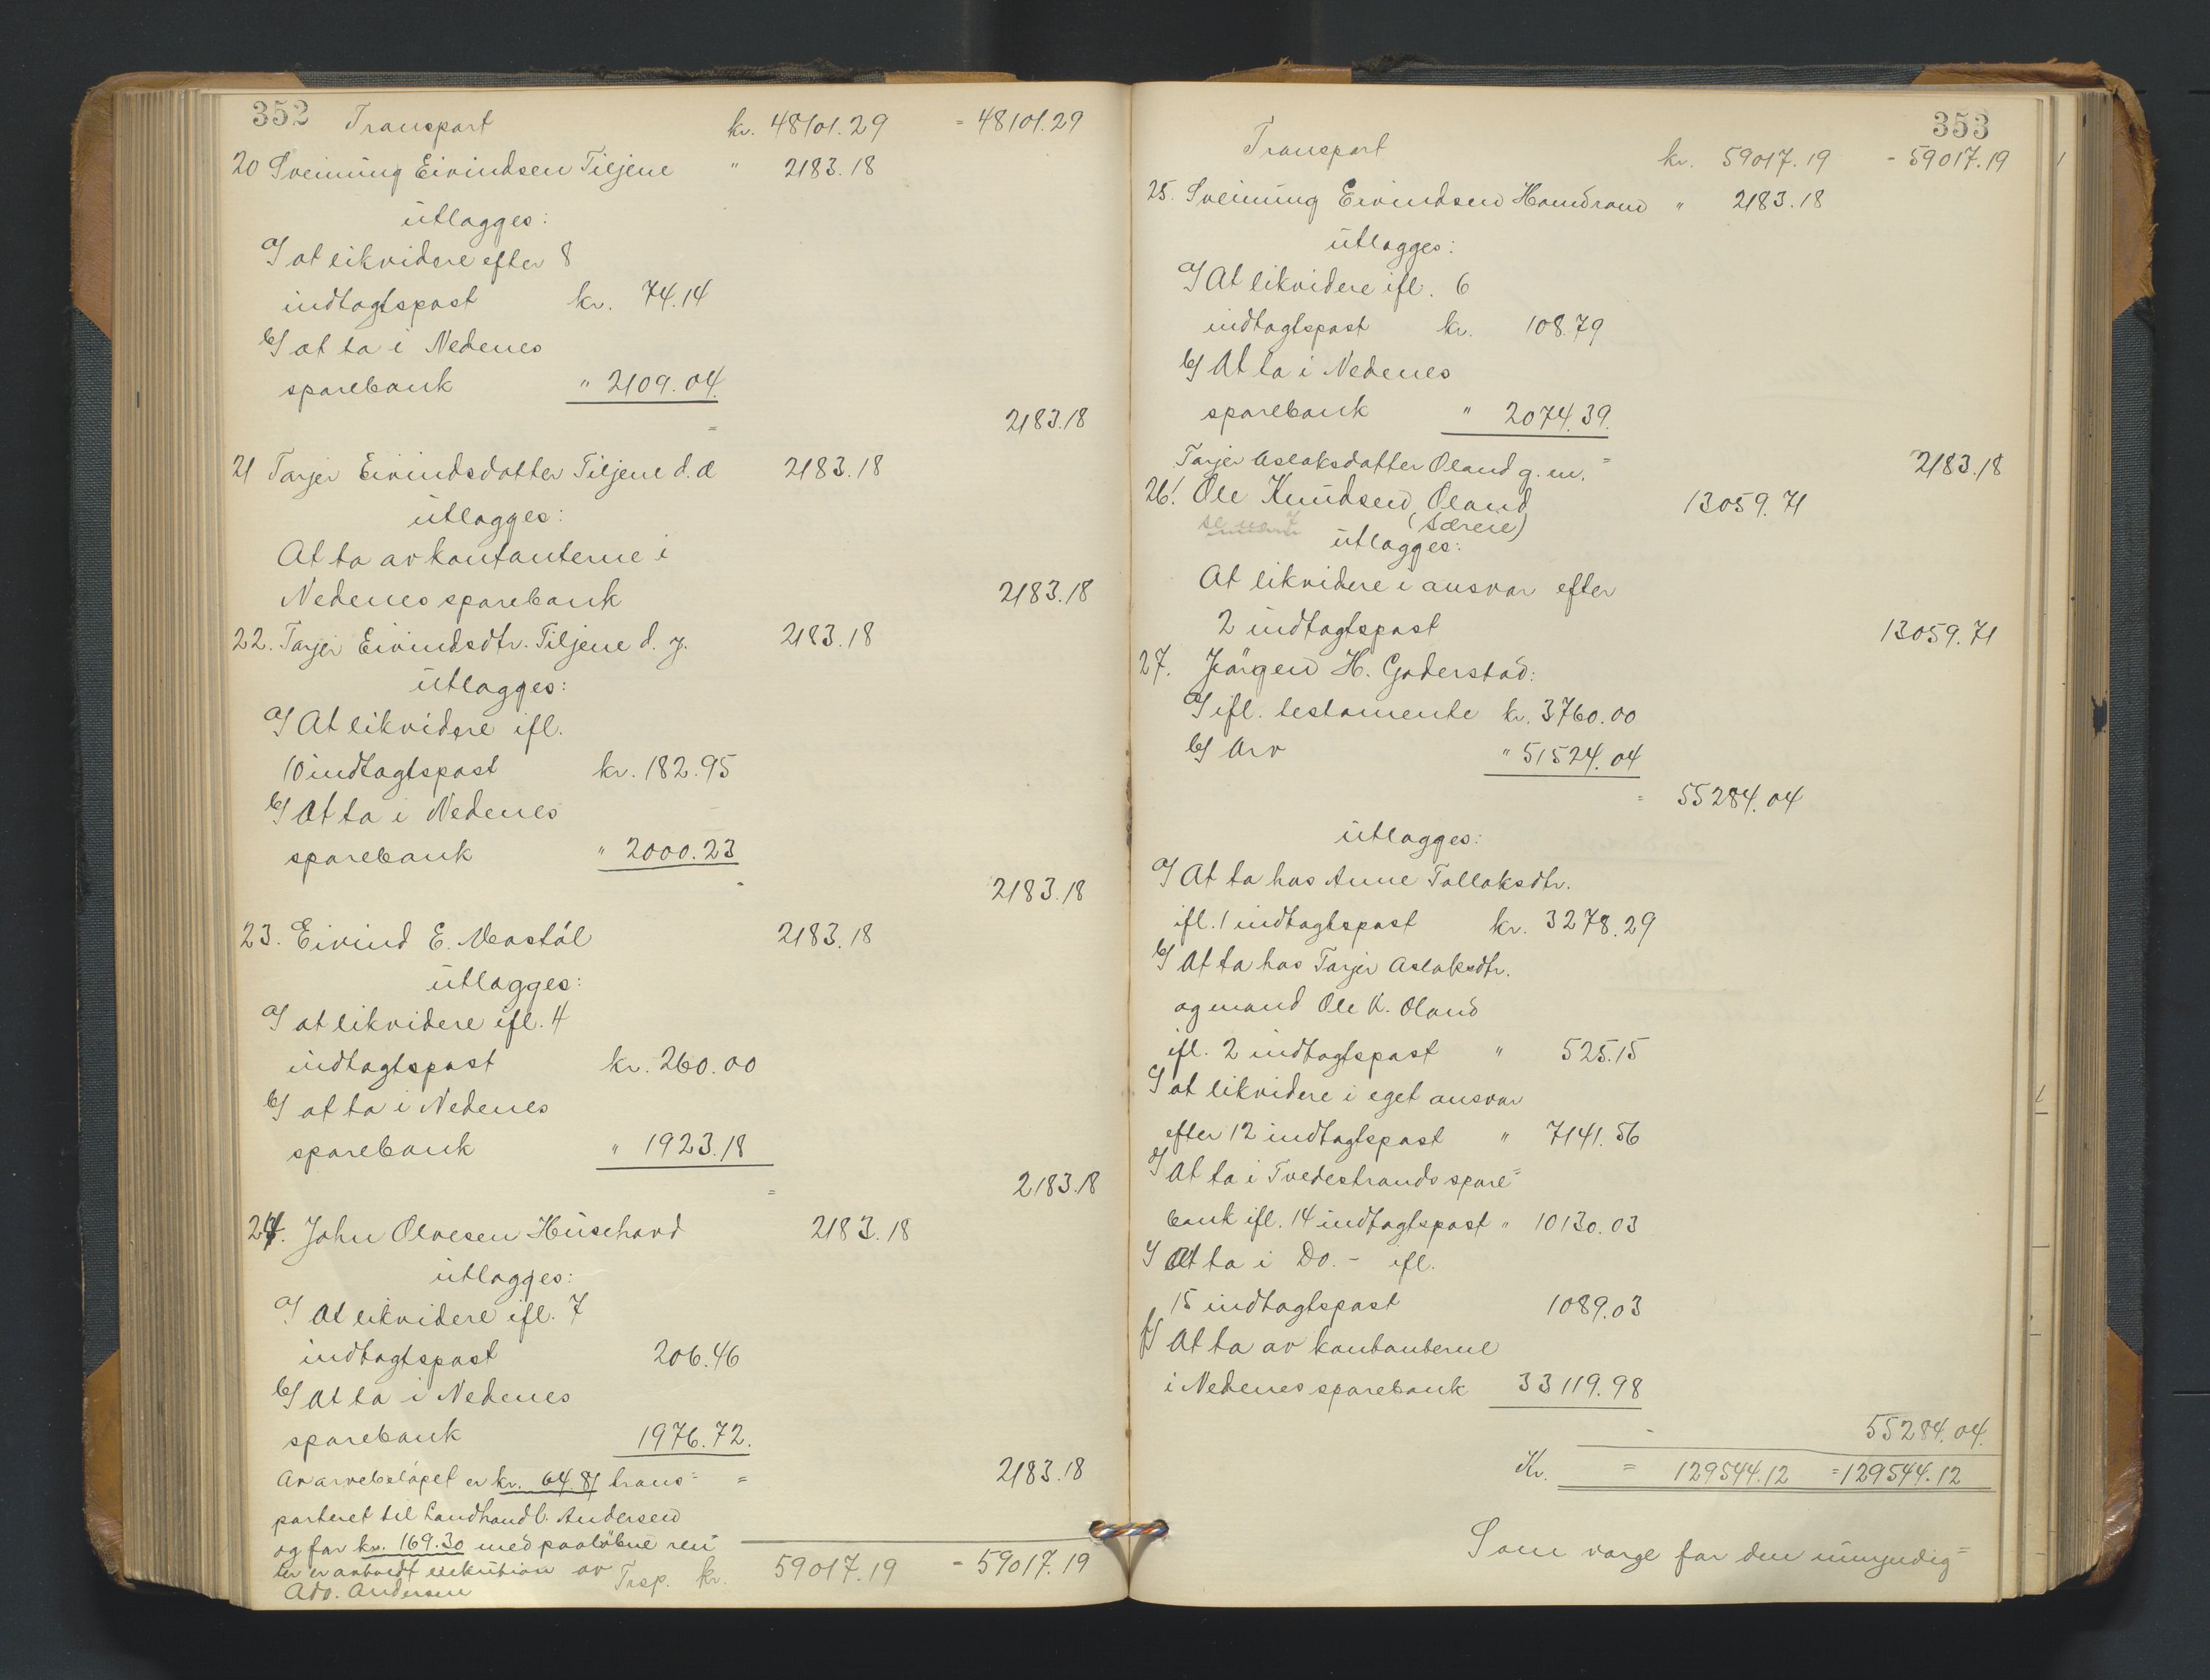 352 Transport kr. 48101.29 = 48101.29
20 Sveinung Eivindsen Tiljene " 2183.18
utlægges:
a/ at likvidere efter 8
indtægtspost kr. 74.14
b/ at ta i Nedenes
sparebank " 2109.04.
= 2183.18
21 Tarjer Eivindsdatter Tiljene d.æ 2183.18
utlægges:
At ta av kontanterne i
Nedenes sparebank 2183.18
22. Tarjer Eivindsdtr. Tiljene d. y. 2183.18
utlægges:
a/ At likvidere ifl.
10 indtægtspost kr. 182.95
b/ At ta i Nedenes
sparebank " 2000.23
- 2183.18
23. Eivind E. Mostøl 2183.18
utlægges:
a/ at likvidere ifl. 4
indtægtspost kr. 260.00
b/ at ta i Nedenes
sparebank " 1923.18
= 2183.18
24. John Olvesen Husehard 2183.18
utlægges:
a/ At likvidere ifl. 7
indtægtspost 206.46
b/ At ta i Nedenes
sparebank 1976.72.
Av arvebeløpet er kr. 64.81 trans= = 2183.18
porteret til Landhandl. Andersen
og for kr. 169.30 med paaløbne ren
ter er anholdt eksekution av
Adv. Andersen
Trsp. kr. 59017.19 = 59017.19
353
Transport kr. 59017.19 - 59017.19
25. Sveinung Eivindsen Homdrom " 2183.18
utlægges:
a/ At likvidere ifl. 6
indtægtspost kr. 108.79
b/ At ta i Nedenes
sparebank " 2074.39.
= 2183.18
Tarjer Aslaksdatter Oland g. m.
26. Ole Knudsen Oland 13059.71
(særeie)
utlægges:
At likvidere i ansvar efter
2 indtægtspost 13059.71
27. Jørgen H. Goderstad:
a/ ifl. testamente kr. 3760.00
b/ Arv " 51524.04
= 55284.04
utlægges:
a/ At ta hos Anne Tallaksdtr.
ifl. 1 indtægtspost kr. 3278.29
b/ At ta hos Tarjer Aslaksdtr.
og mand Ole K. Oland
ifl. 2 indtægtspost " 525.15
c/ at likvidere i eget ansvar
efter 12 indtægtspost " 7141.56
d/ At ta i Tvedestrands spare=
bank ifl. 14 indtægtspost " 10130.03
e/ At ta i Do. - ifl.
15 indtægtspost 1089.03
f/ At ta av kontanterne
i Nedenes sparebank 33119.98
- 55284.04.
Kr. = 129544.12 = 129544.12
Som verge for den umyndig=